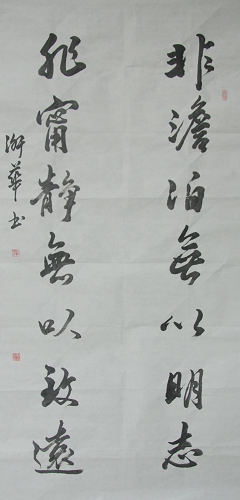 非澹泊無以明志
非甯靜無以致遠
華书